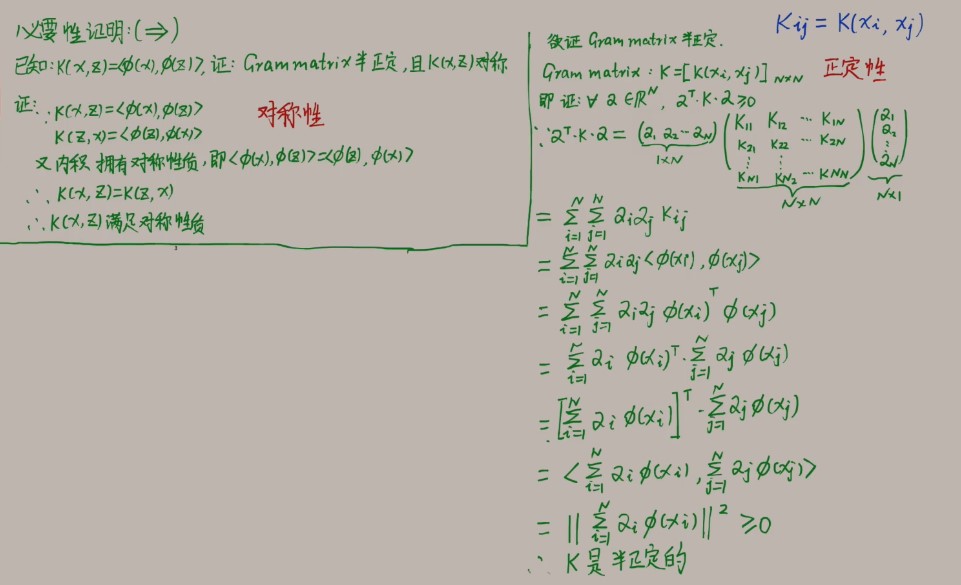 必要性证明:(⇒)
已知:K(x,z)=<φ(x),φ(z)>,证:Gram matrix半正定,且K(x,z)对称
证:∵K(x,z)=<φ(x),φ(z)>
K(z,x)=<φ(z),φ(x)>
对称性
又内积 拥有对称性质,即<φ(x),φ(z)>=<φ(z),φ(x)>
∴ K(x,z)=K(z,x)
∴K(x,z)满足对称性质
K_{ij} = K(x_i, x_j)
欲证 Gram matrix 半正定.
Gram matrix : K=[K(x_i,x_j)]_{N×N} 正定性
即证:∀ α∈ℝ^N, α^T·K·α≥0
∵α^T·K·α = (α_1 α_2 ⋯ α_N) (K_{11} K_{12} ⋯ K_{1N} (α_1
K_{21} K_{22} ⋯ K_{2N} α_2
⋮ ⋮ ⋮
K_{N1} K_{N2} ⋯ K_{NN}) α_N)
1×N N×N N×1
= ∑_{i=1}^N ∑_{j=1}^N α_iα_j K_{ij}
= ∑_{i=1}^N ∑_{j=1}^N α_iα_j<φ(x_i),φ(x_j)>
= ∑_{i=1}^N ∑_{j=1}^N α_iα_j φ(x_i)^T φ(x_j)
= ∑_{i=1}^N α_i φ(x_i)^T·∑_{j=1}^N α_j φ(x_j)
=[∑_{i=1}^N α_i φ(x_i)]^T·∑_{j=1}^N α_jφ(x_j)
= <∑_{i=1}^N α_iφ(x_i),∑_{j=1}^N α_jφ(x_j)>
= ||∑_{i=1}^N α_iφ(x_i)||^2 ≥0
∴ K是半正定的